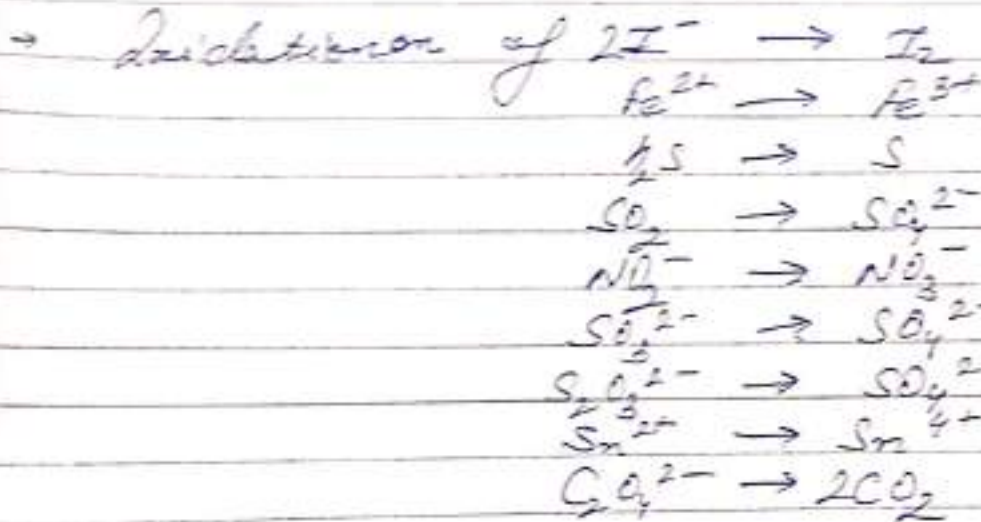 → Oxidationon of 2I⁻ → I₂
Fe²⁺ → Fe³⁺
H₂S → S
SO₂ → SO₄²⁻
NO₂⁻ → NO₃⁻
SO₃²⁻ → SO₄²⁻
S₂O₃²⁻ → SO₄²⁻
Sn²⁺ → Sn⁴⁺
C₂O₄²⁻ → 2CO₂